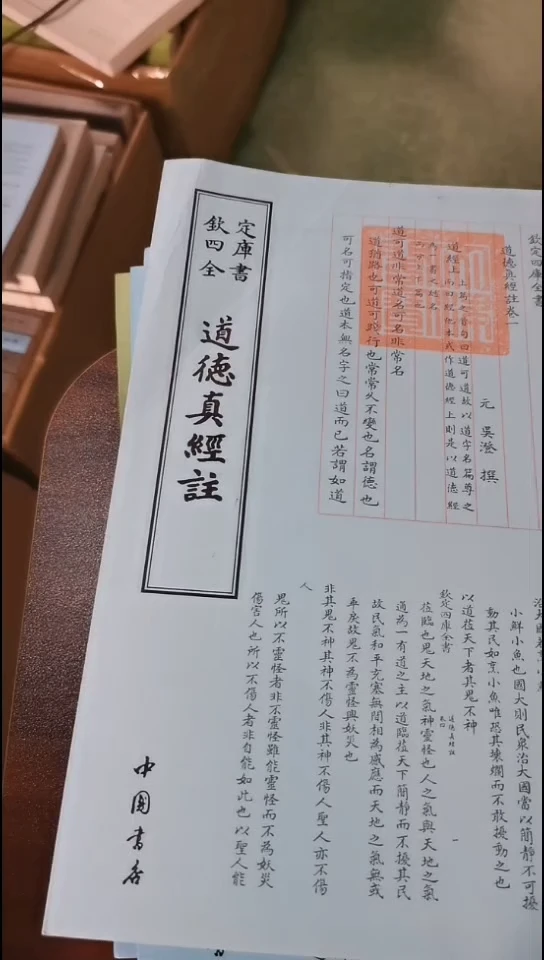 欽定四庫全書
道德真經註
中國書店
欽定四庫全書
道德真經註卷一
元 吳澄 撰
道經上 上篇之首句曰道可道故以道字名篇尊之
而曰經他本或作道德經上則是以道德經
為一書之總名
道可道非常道名可名非常名
道猶路也可道可踐行也常常久不變也名謂德也
可名可指定也道本無名字之曰道而已若謂如道
小鮮小魚也國大則民衆治大國當以簡靜不可擾
動其民如烹小魚唯恐其壞爛而不敢擾動之也
以道莅天下者其鬼不神
欽定四庫全書
道德真經註
莅臨也鬼天地之氣神靈怪也人之氣與天地之氣
通為一有道之主以道臨莅天下簡靜而不擾其民
故民氣和平充塞無間相為感應而天地之氣無或
乖戾故鬼不為靈怪興妖災也
非其鬼不神其神不傷人非其神不傷人聖人亦不傷
人
鬼所以不靈怪者非不靈怪雖能靈怪而不為妖災
傷害人也所以不傷人者非自能如此也以聖人能